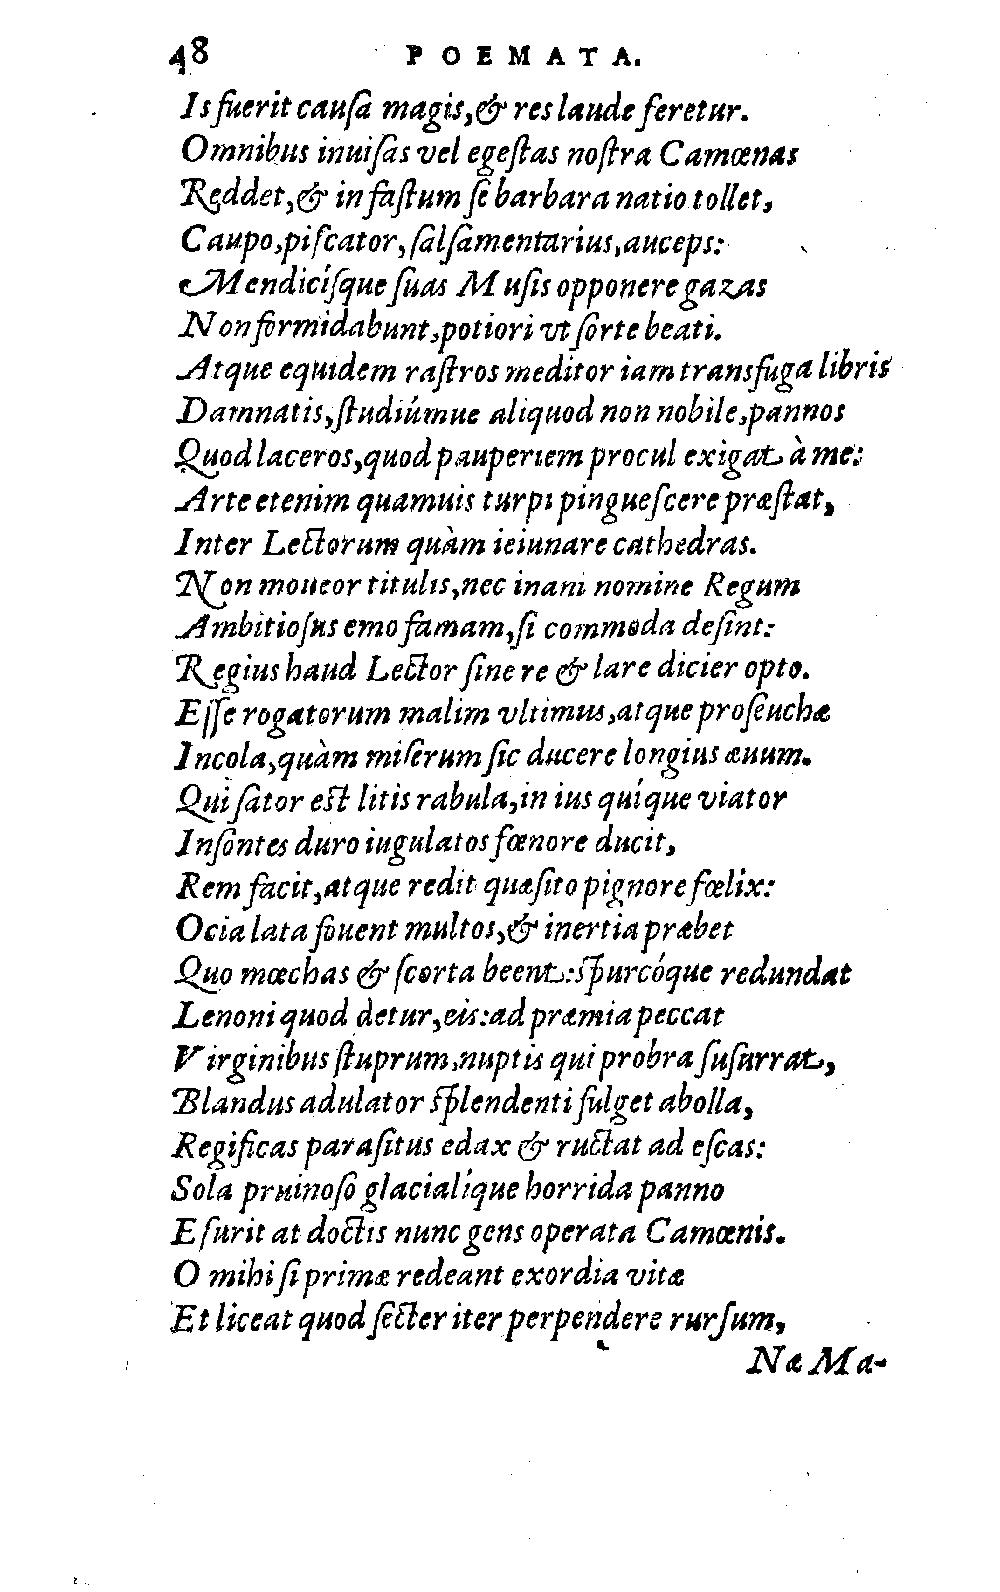 48 POEMATA.
Is fuerit cauſa magis,& res laude feretur.
Omnibus inuiſas vel egeſtas noſtra Camœnas
Reddet,& in faſtum ſe barbara natio tollet,
Caupo,piſcator,ſalſamentarius,auceps:
Mendiciſque ſuas Muſis opponere gazas
Non formidabunt,potiori vt ſorte beati.
Atque equidem raſtros meditor iam transfuga libris
Damnatis,ſtudiúmue aliquod non nobile,pannos
Quod laceros,quod pauperiem procul exigat à me:
Arte etenim quamuis turpi pingueſcere præſtat,
Inter Lectorum quàm ieiunare cathedras.
Non moueor titulis,nec inani nomine Regum
Ambitioſus emo famam,ſi commoda deſint:
Regius haud Lector ſine re & lare dicier opto.
Eſſe rogatorum malim vltimus,atque proſeuchæ
Incola,quàm miſerum ſic ducere longius æuum.
Qui ſator eſt litis rabula,in ius quique viator
Inſontes duro iugulatos fœnore ducit,
Rem facit,atque redit quæſito pignore fœlix:
Ocia lata fouent multos,& inertia præbet
Quo mœchas & ſcorta beent:ſpurcóque redundat
Lenoni quod detur,eis:ad præmia peccat
Virginibus ſtuprum,nuptis qui probra ſuſurrat,
Blandus adulator ſplendenti fulget abolla,
Regificas paraſitus edax & ructat ad eſcas:
Sola pruinoſo glacialíque horrida panno
Eſurit at doctis nunc gens operata Camœnis.
O mihi ſi primæ redeant exordia vitæ
Et liceat quod ſecter iter perpendere rurſum,
Næ Ma-